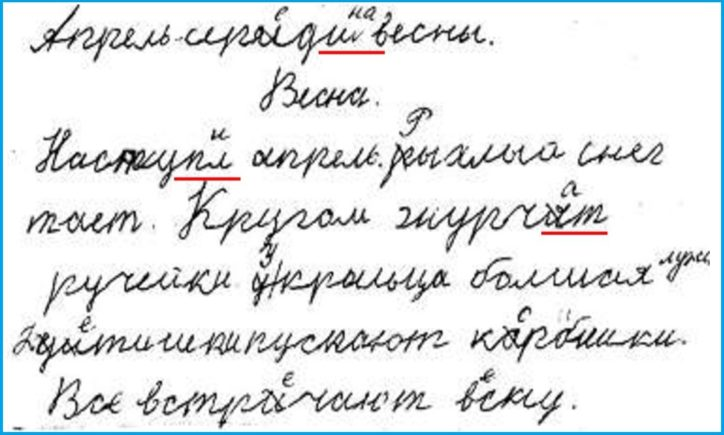 Апрель-середина весны.
Весна.
Наступил апрель. Рыхлыа снег
тает. Кругом журчат
ручейки у кральца болшая лужи
детишкипускают кораблики.
Все встречают весну.